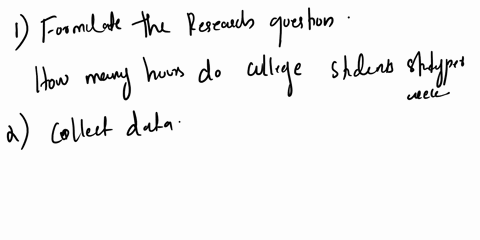 1) Formulate the Research question.
How many hours do college students study per
week
2) Collect data.